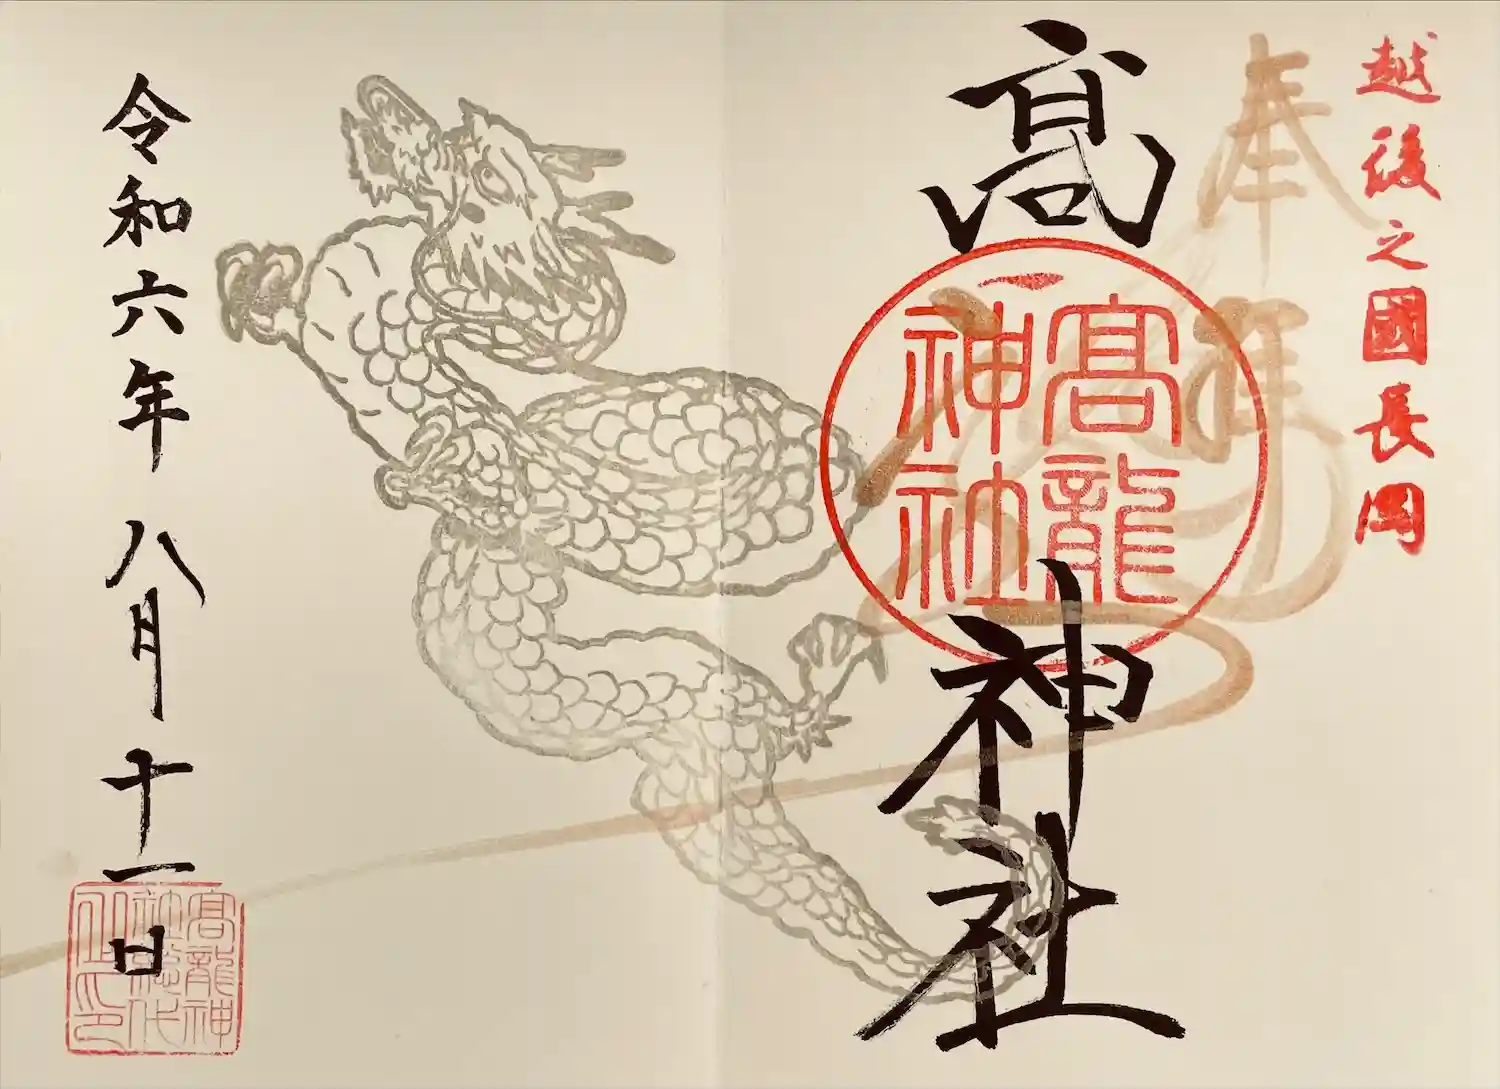 越後之國長岡
奉拝
髙龍神社
髙龍
神社
令和六年八月十一日
髙龍神
社總代
之印